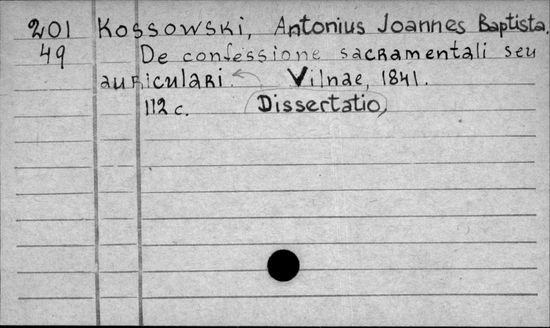 201 Kossowski, Antonius Joannes Baptista.
49 De confessione sacramentali seu
auriculari. Vilnae, 1841.
112 c. (Dissertatio)